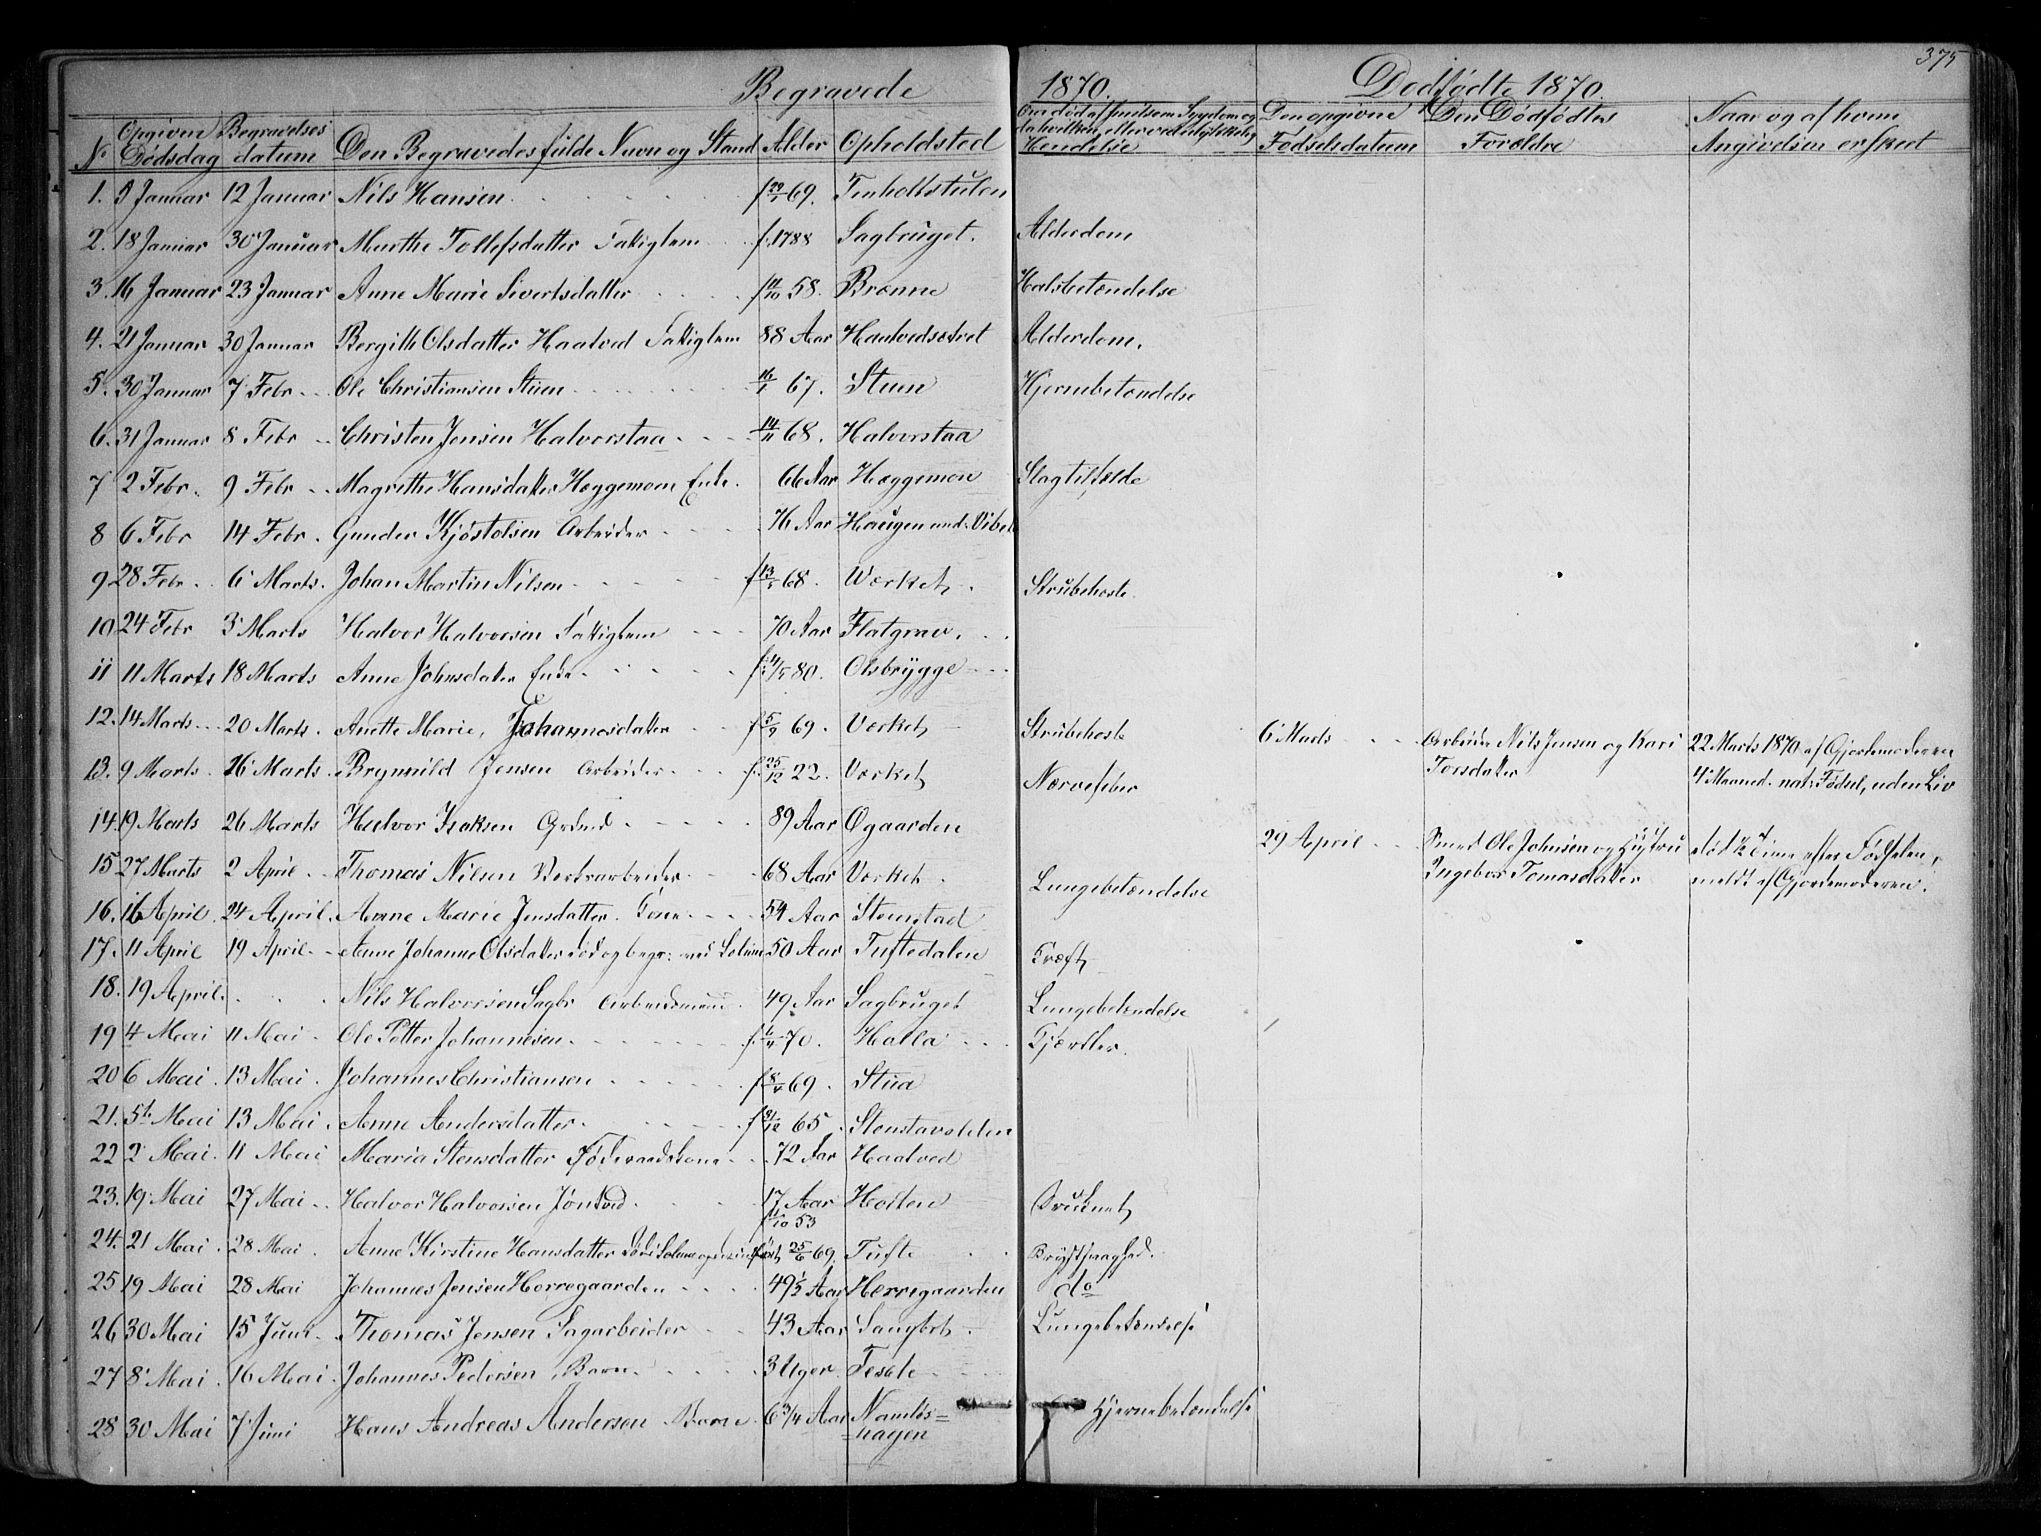 375
Begravede 1870. Dødfødte 1870.
No Opgiven Dødsdag Begravelses datum Den Begravedes fulde Navn og Stand Alder Opholdsted Hendelse Den opgivne Fødselsdatum Den Dødfødtes Forældre Naar og af hvem Angivelsen er skeet
1. 5 Januar 12 Januar Nils Hansen 69.
2. 18 Januar 30 Januar Marthe Tollefsdatter Fattiglem f. 1788 Sagbruget. Alderdom
3. 16 Januar 23 Januar Anne Marie Sivertsdatter f 11/10 58. Brønne Halsbetændelse
4. 21 Januar 30 Januar Bergith Olsdatter Haatved Fattiglem 88 Aar Haatvedsætret Alderdom.
5. 30 Januar 7 Febr Ole Christiansen Stuen 16/1 67. Stuen Hjernebetændelse
6. 31 Januar 8 Febr Christen Jensen Halvorstaa 14/11 68. Halvorstaa
7 2 Febr. 9 Febr Magrethe Hansdatter Heggemoen Enke. 66 Aar Hæggemoen Slagtilfælde
8 6 Febr 14 Febr. Gunder Kjøstolsen Arbeider 76 Aar Haugen und. Vibet
9 28 Febr. 6 Marts. Johan Martin Nilsen f 13/5 68. Værket. Strubehoste
10 24 Febr 3 Marts Halvor Halvorsen Fattiglem 70 Aar Flatgrav.
11 11 Marts 18 Marts Anne Johnsdatter Enke 80. Olsbrygge
12. 14 Marts 20 Marts. Anette Marie, Johannesdatter f 5/9 69. Værket Strubehoste
6 Marts Arbeider Nils Jensen og Kari Torsdatter 22 Marts 1870 af Gjordemoderen
4 Maaned. nat: Fødsel, uden Liv
13. 9 Marts. 16 Marts. Brynild Jensen Arbeider f. 25/12 22. Værket Nervefeber
14. 19 Marts 26 Marts Halvor Isaksen Grdmd 89 Aar Øgaarden
29 April Smed Ole Johnsen og Hustru Ingebor Tomasdatter død 1/2 Time efter Fødselen,
meldt af Gjordemoderen.
15 27 Marts 2 April Thomas Nilsen Værksarbeider 68 Aar Værket. Lungebetændelse
16. 16 April. 24 April. Anne Marie Jensdatter. 54 Aar Stenstad
17. 11 April 19 April Anne Johanne Olsdatter død og begr: ved Solum 50 Aar Tuftedalen Kræft
18. 19 April. Nils Halvorsen Sagbr Arbeidsmand 49 Aar Sagbruget Lungebetændelse
19 4 Mai 11 Mai Ole Petter Johannesen 70. Halla Kjertler.
20 6 Mai. 13 Mai. Johannes Christiansen f 8/4 69. Stua
21. 5t Mai 13 Mai. Anne Andersdatter. 65. Stenstadvolden
22 2 Mai. 11 Mai Maria Stensdatter Føderaadskone 72 Aar Haatved
23. 19. Mai 27 Mai Halvor Halvorsen 17 Aar 11/10 53 Holten Druknet
24. 21 Mai. 28 Mai. Anne Kirstine Hansdatter 25/6 69. Tufte Brystsvaghed.
25 19 Mai 28 Mai Johannes Jensen Horregaarden 49 1/2 Aar Herregaarden do
26 30 Mai 15 Juni Thomas Jensen Sagarbeider 43 Aar Sangbet. Lungebetændelse
27 8 Mai. 16 Mai. Johannes Pedersen, Barn. 3 Uger
28 30 Mai 7 Juni Hans Andreas Andersen Barn 6 3/4 Aar Namløs=
=hagen Hjernebetændelse